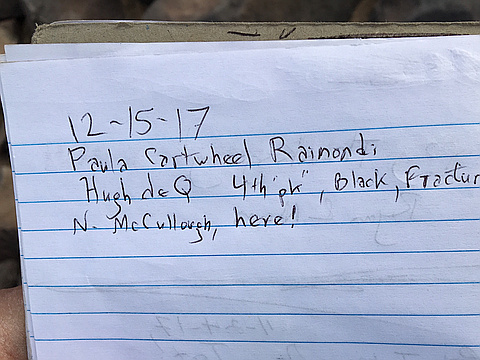 12-15-17
Paula Cartwheel Raimondi
Hugh de Q 4th "pk", Black, Fractur
N. McCullough, here!